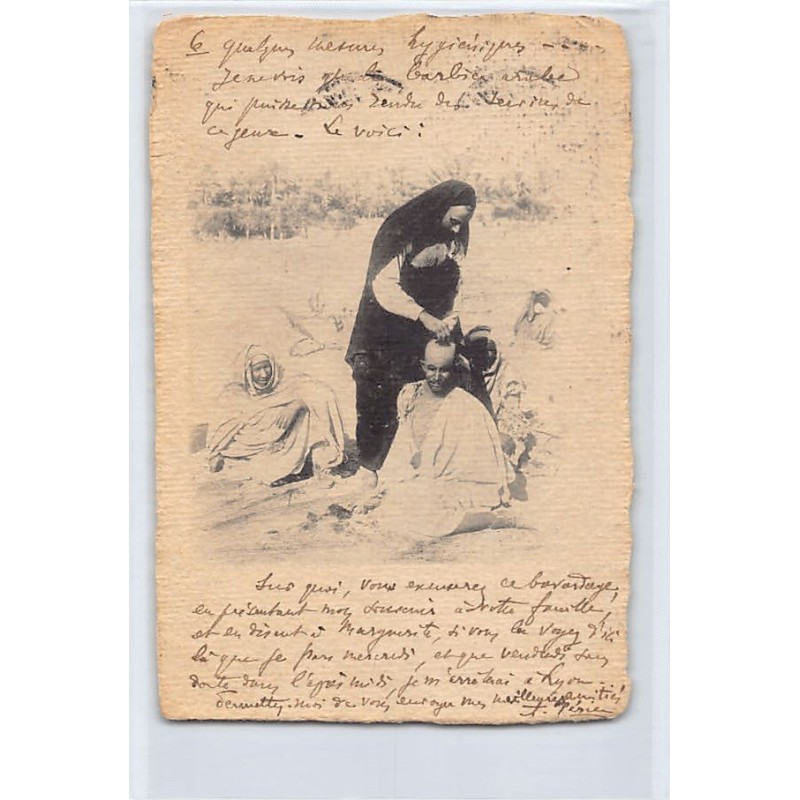 6 quelques mesures hygiéniques —
Je ne vois que le barbier arabe
qui puisse vous rendre des services de
ce genre. Le voici :
Sur quoi, vous excuserez ce bavardage,
en présentant mon souvenir à votre famille,
et en disant à Marguerite, si vous la voyez d'ici
là que je pars mercredi, et que vendredi sans
doute dans l'après midi je m'arrêterai à Lyon.
Permettez-moi de vous envoyer mes meilleures amitiés